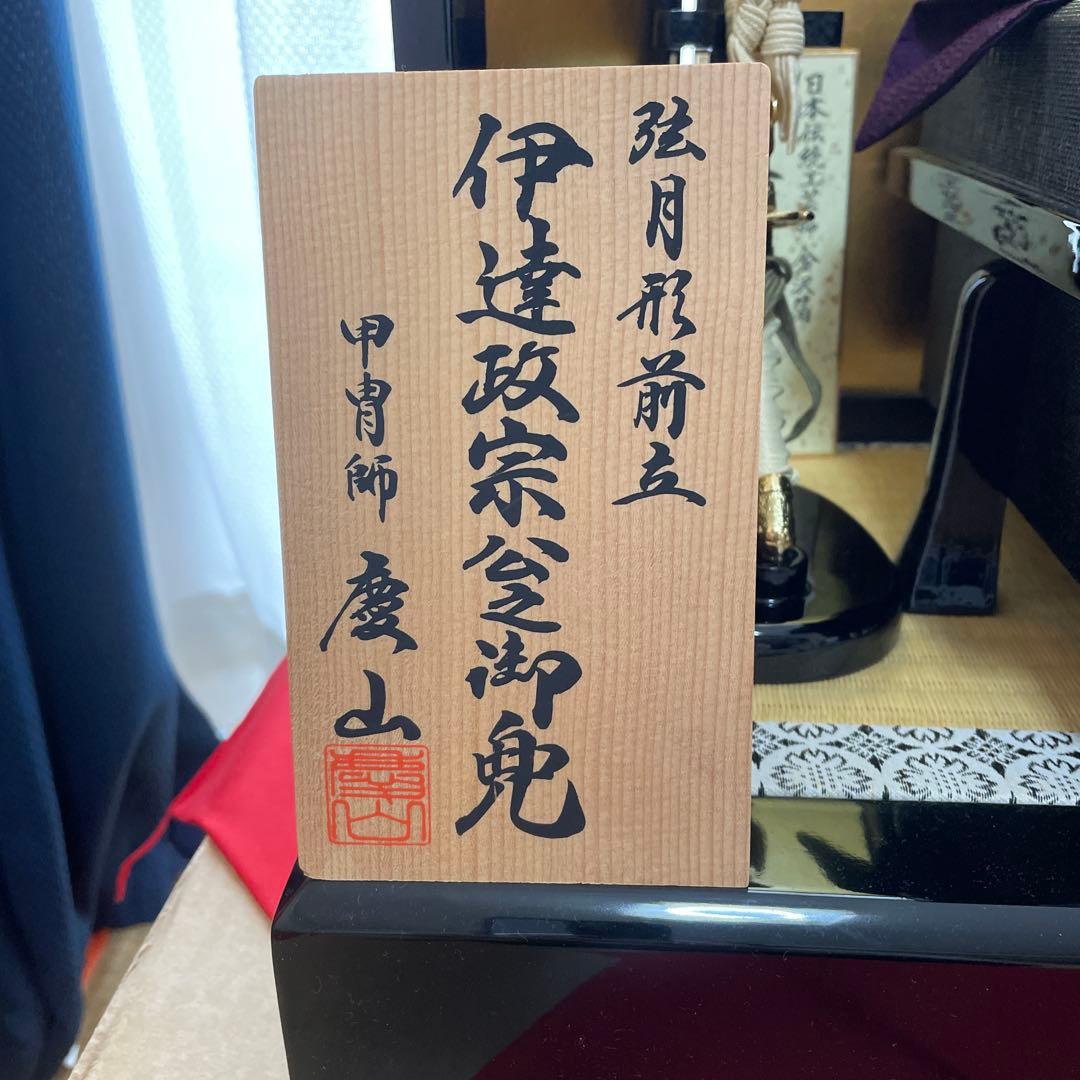 弦月形前立
伊達政宗公之御兜
甲冑師 慶山
慶山
日本伝統工